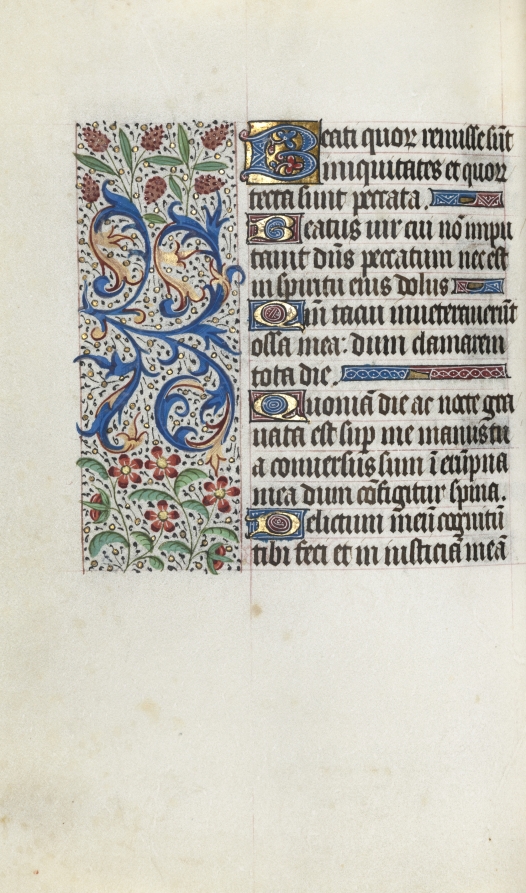 Beati quorꝝ remisse sūt
iniquitates et quorꝝ
tecta sunt peccata.
Beatus vir cui nō impu
tauit dn̄s peccatum nec est
in spiritu eius dolus
Qm̄ tacui inueterauerūt
ossa mea: dum clamarem
tota die.
Quoniā die ac nocte gra
uata est sup me manus tu
a conuersus sum ī erūpna
mea dum cōfigitur spina.
Delictum meū cognitū
tibi feci et in iusticiā meā